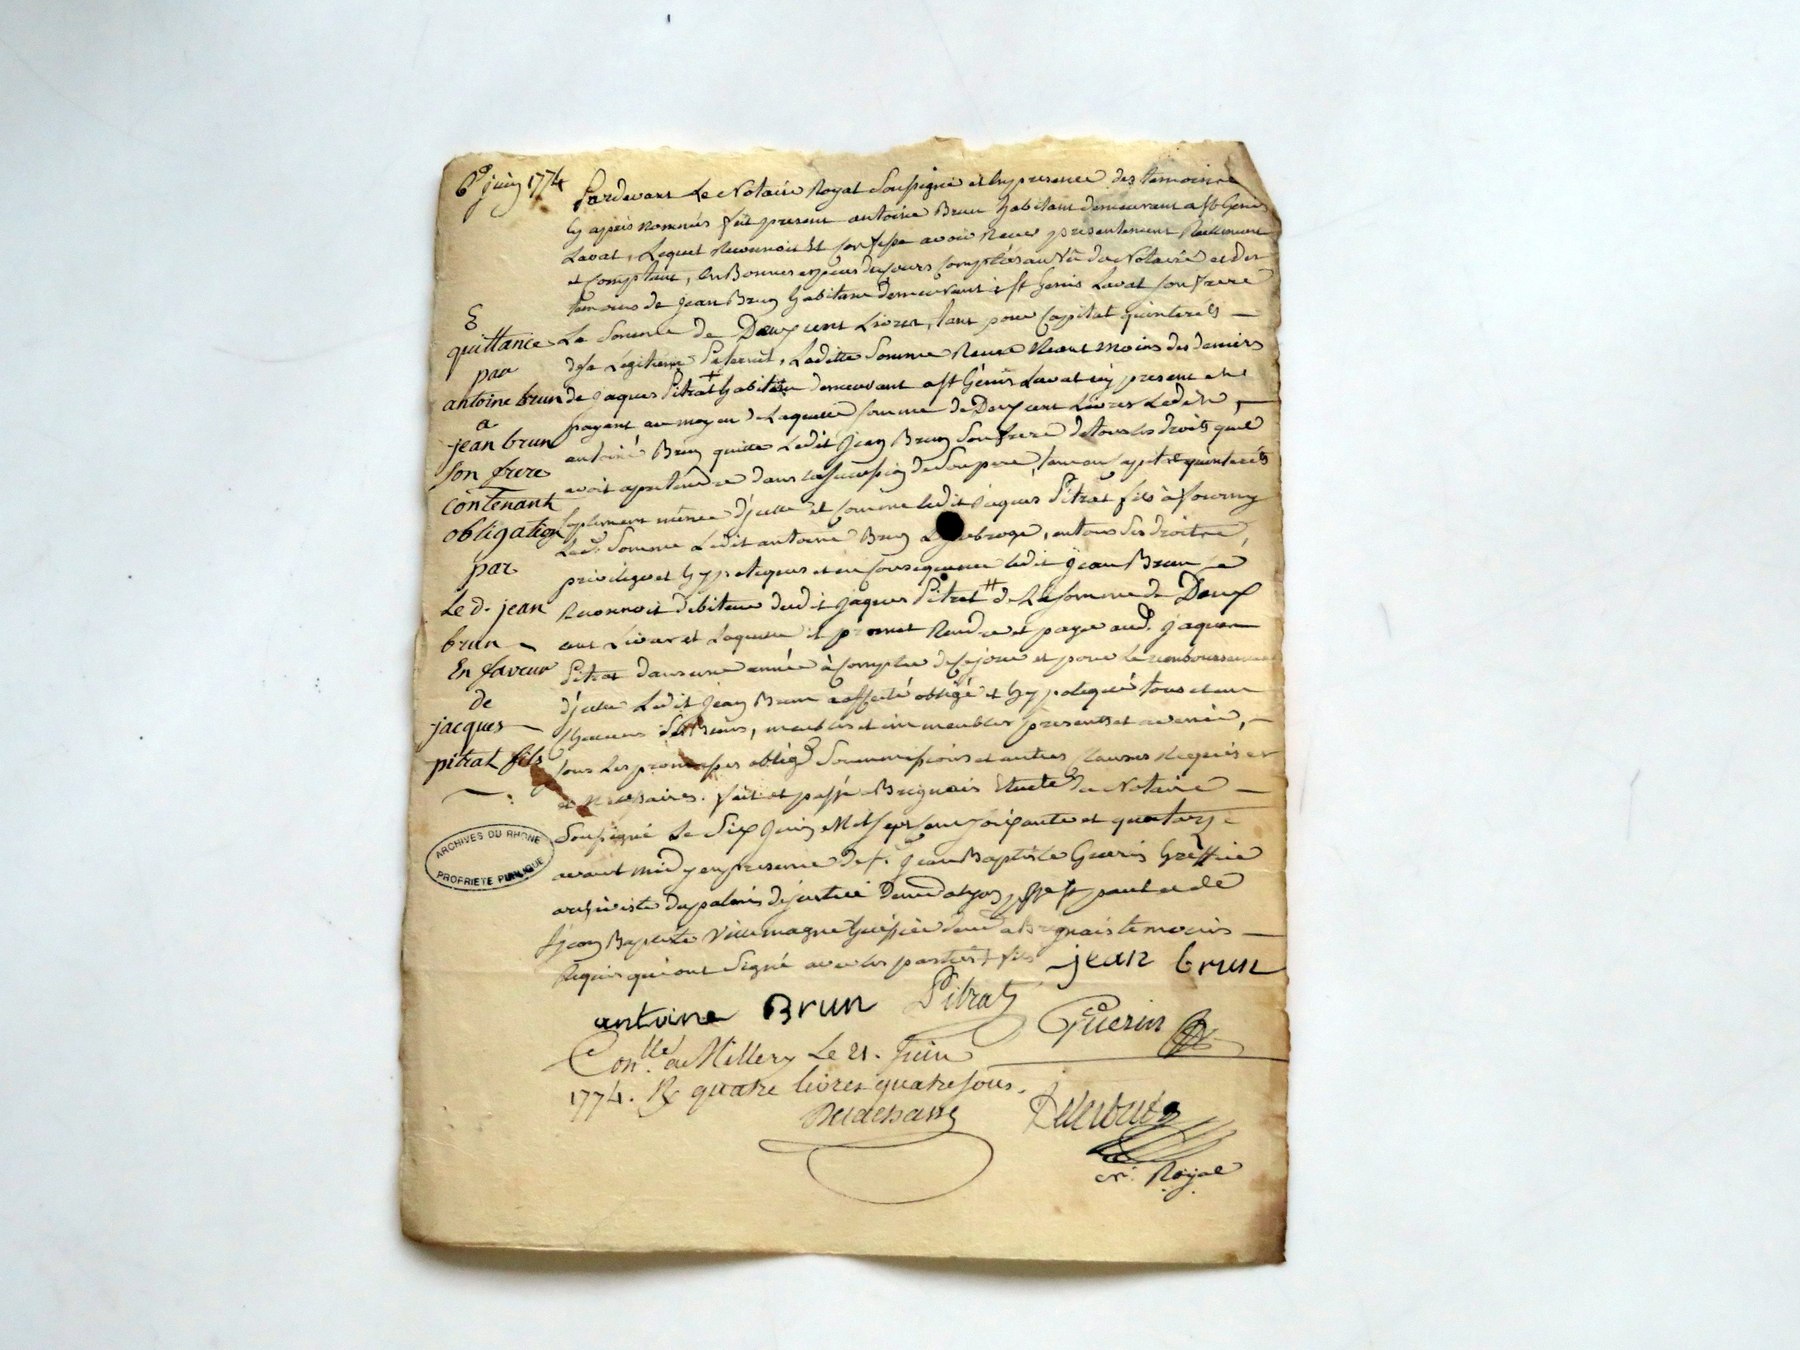 6e juin 1774
quittance
par
antoine brun
a
jean brun
son frere
contenant
obligation
par
Le d. jean
brun
En faveur
de
jacques
pitrat fils
ARCHIVES DU RHONE
PROPRIETE PUBLIQUE
Pardevant Le Notaire Royal Soussigné et En presence des temoins
Cy apres nommés fut present antoine Brun habitant demeurant a St Genis
Laval, Lequel Reconnoit Et Confesse avoir Receu presentement Reellement
et Comptant, En Bonnes especes du Cours Comptées au Vû du Notaire et des
temoins de Jean Brun habitant demeurant a St Genis Laval son frere
La Somme de Deux cent Livres, tant pour Capital qu'interets
de sa Legitime Paternel, Laditte Somme Receue Neant moins des deniers
de jaques Pitrat + habitant demeurant a St Génis Laval icy present et
payant au moyen de Laquelle somme de Deux cent Livres Ledit
antoine Brun quitte Ledit Jean Brun Son frere de tous les droits quil
avoit a pretendre dans la Succession de Son pere, tant en qu'interets
Suplement même d'jcelle et Comme ledit Jaques Pitrat fils à fourny
Lad. Somme Ledit antoine Brun Le Subroge, en tous Ses droits,
privileges et hypoteques et en Consequence ledit Jean Brun Se
Reconnoit débiteur dudit Jaques Pitrat # de La somme de Deux
cent Livres et Laquelle il promet Rendre et payer aud. Jaques
Pitrat dans une année à Compter de Ce jour et pour Le remboursement
d'jcelle Ledit Jean Brun a affecté obligé et hypotequé tous et un
Chacuns Ses Biens, meubles et immeubles presents et avenir,
tous Les promesses oblig. Soummissions et autres Clauses Requises
et Necessaires. fait et passé a Brignais Etude du Notaire
Soussigné Le Six Juin Mil Sept Cent Soixante et quatorze
avant midy en presence de S. Jean Baptiste Guerin Greffier
archiviste du palais de justice Demt a Lyon St paul et de
Jean Baptiste Villemagne huissier demt a Brignais temoins
Requis qui ont Signé avec les parties + fils
jean brun
antoine Brun Pitrat
Guerin
Conllé a Millery Le 21. Juin
1774. R. quatre livres quatre sous.
N. Royal